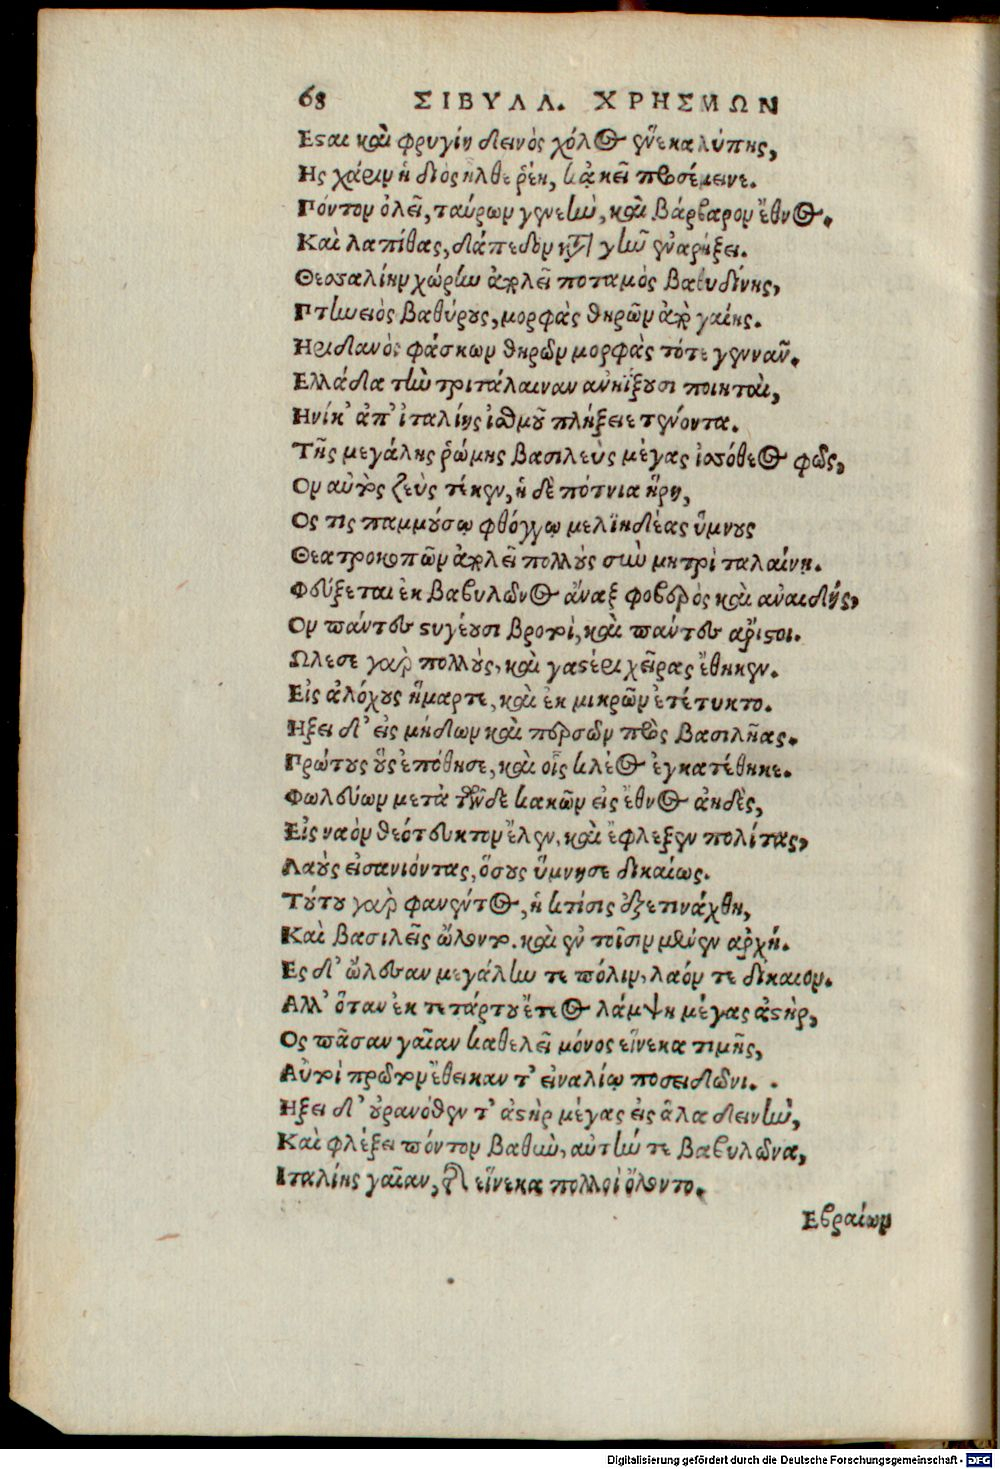 68 ΣΙΒΥΛΛ. ΧΡΗΣΜΩΝ
Εϛαι καὶ φρυγίη δεινὸς χόλος ἕνεκα λύπης,
Ης χάριν ἡ διὸς ἦλθε ῥέη, κἀκεῖ προσέμεινε.
Πόντον ὀλεῖ, ταύρων γενεὴν, καὶ βάρβαρον ἔθνος.
Καὶ λαπίθας, δάπεδον κατὰ γῆν ἐναρήξει.
Θεσσαλίην χώρην ἀπολεῖ ποταμὸς βαθυδίνης,
Πτηνειὸς βαθύρους, μορφὰς θηρῶν ἀπὸ γαίης.
Ηριδανὸς φάσκων θηρῶν μορφὰς τότε γεννᾶν.
Ελλάδα τὴν τριτάλαιναν ἀνηΐξουσι ποιηταὶ,
Ηνίκ' ἀπ' ἰταλίης ἰσθμοῦ πλήξειε τένοντα.
Τῆς μεγάλης ῥώμης βασιλεὺς μέγας ἰσσόθεος φῶς,
Ον αὐτὸς ζεὺς τέκεν, ἡ δὲ πότνια ἥρη,
Ος τις παμμούσῳ φθόγγῳ μελιηδέας ὕμνους
Θεατροκοπῶν ἀπολεῖ πολλοὺς σὺν μητρὶ ταλαίνῃ.
Φεύξεται ἐκ βαβυλῶνος ἄναξ φοβερὸς καὶ ἀναιδής,
Ον πάντες ϛυγέουσι βροτοὶ, καὶ πάντες ἄριϛοι.
Ωλεσε γὰρ πολλοὺς, καὶ γαϛέρι χεῖρας ἔθηκεν.
Εἰς ἀλόχους ἥμαρτε, καὶ ἐκ μικρῶν ἐτέτυκτο.
Ηξει δ' εἰς μήδων καὶ περσῶν πρὸς βασιλῆας.
Πρώτους οὓς ἐπόθησε, καὶ οἷς κλέος ἐγκατέθηκε.
Φωλεύων μετὰ τῶνδε κακῶν εἰς ἔθνος ἀηδὲς,
Εἰς ναὸν θεότευκτον ἕλεν, καὶ ἔφλεξεν πολίτας,
Λαοὺς εἰσανιόντας, ὅσους ὕμνησε δικαίως.
Τούτου γὰρ φανέντος, ἡ κτίσις ἐξετινάχθη,
Καὶ βασιλεῖς ὤλοντο. καὶ ἐν τοῖσιν μένεν ἀρχή.
Ες δ' ὤλεσαν μεγάλην τε πόλιν, λαόν τε δίκαιον.
Αλλ' ὅταν ἐκ τετάρτου ἔτεος λάμψῃ μέγας ἀϛὴρ,
Ος πᾶσαν γαῖαν καθελεῖ μόνος εἵνεκα τιμῆς,
Αὐτοὶ πρῶτον ἔθεικαν τ' εἰναλίῳ ποσειδῶνι.
Ηξει δ' οὐρανόθεν τ' ἀϛὴρ μέγας εἰς ἅλα δεινὴν,
Καὶ φλέξει πόντον βαθὺν, αὐτήν τε βαβυλῶνα,
Ιταλίης γαῖαν, τῆς εἵνεκα πολλοὶ ὄλοντο.
Εβραίων
Digitalisierung gefördert durch die Deutsche Forschungsgemeinschaft - DFG